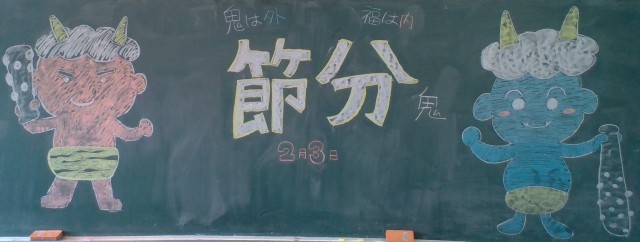 鬼は外 福は内
節分
鬼
2月3日